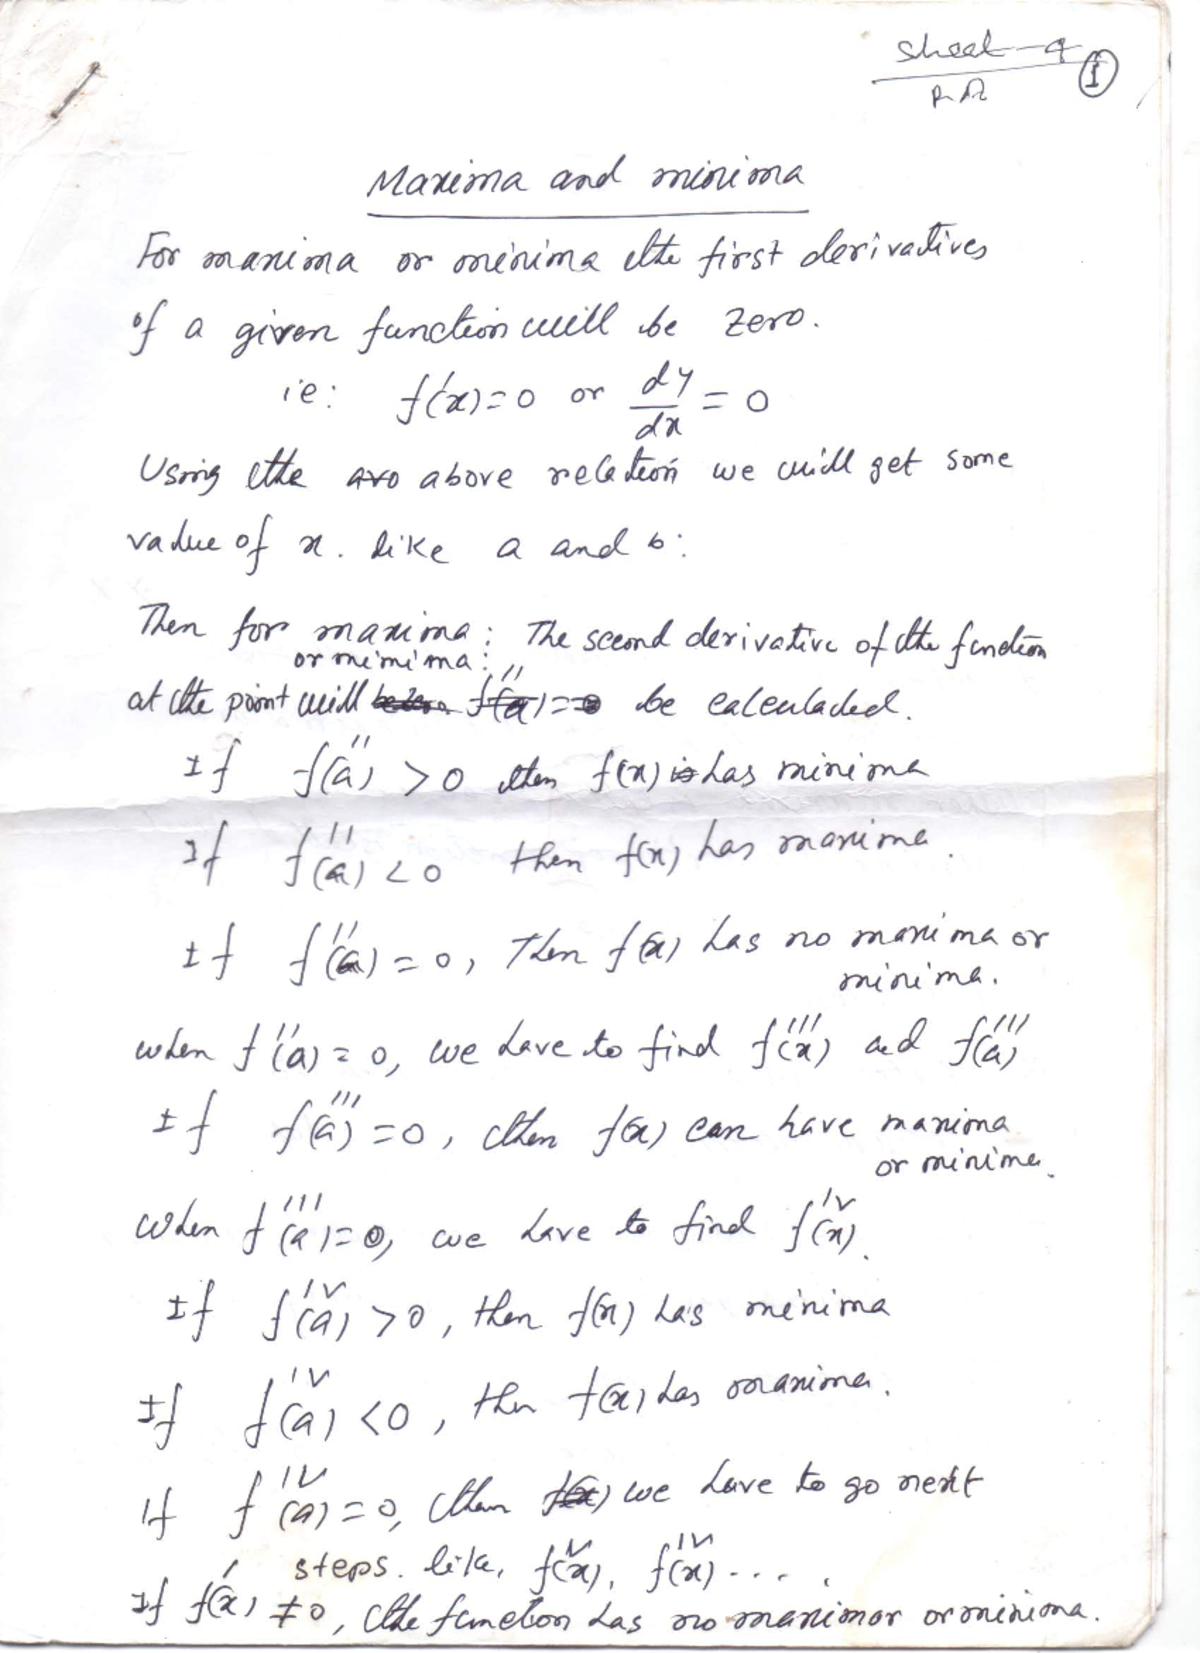 Sheet-4
①
Maxima and minima
For maxima or minima the first derivatives
of a given function will be zero.
ie: f'(x)=0 or dy/dx = 0
Using the above relation we will get some
value of x. like a and b:
Then for maxima: The second derivative of the function
or minima:
at the point will be calculated.
If f''(a) > 0 then f(x) has minima
If f''(a) < 0 then f(x) has maxima.
If f''(a) = 0, Then f(x) has no maxima or
minima.
when f''(a) = 0, we have to find f'''(x) and f'''(a)
If f'''(a) = 0, then f(x) can have maxima
or minima.
when f'''(a) = 0, we have to find f^IV(x).
If f^IV(a) > 0, then f(x) has minima
If f^IV(a) < 0, then f(x) has maxima.
If f^IV(a) = 0, then we have to go next
steps. like, f^V(x), f^IV(x) . . . . .
If f'(x) ≠ 0, the function has no maximor or minima.